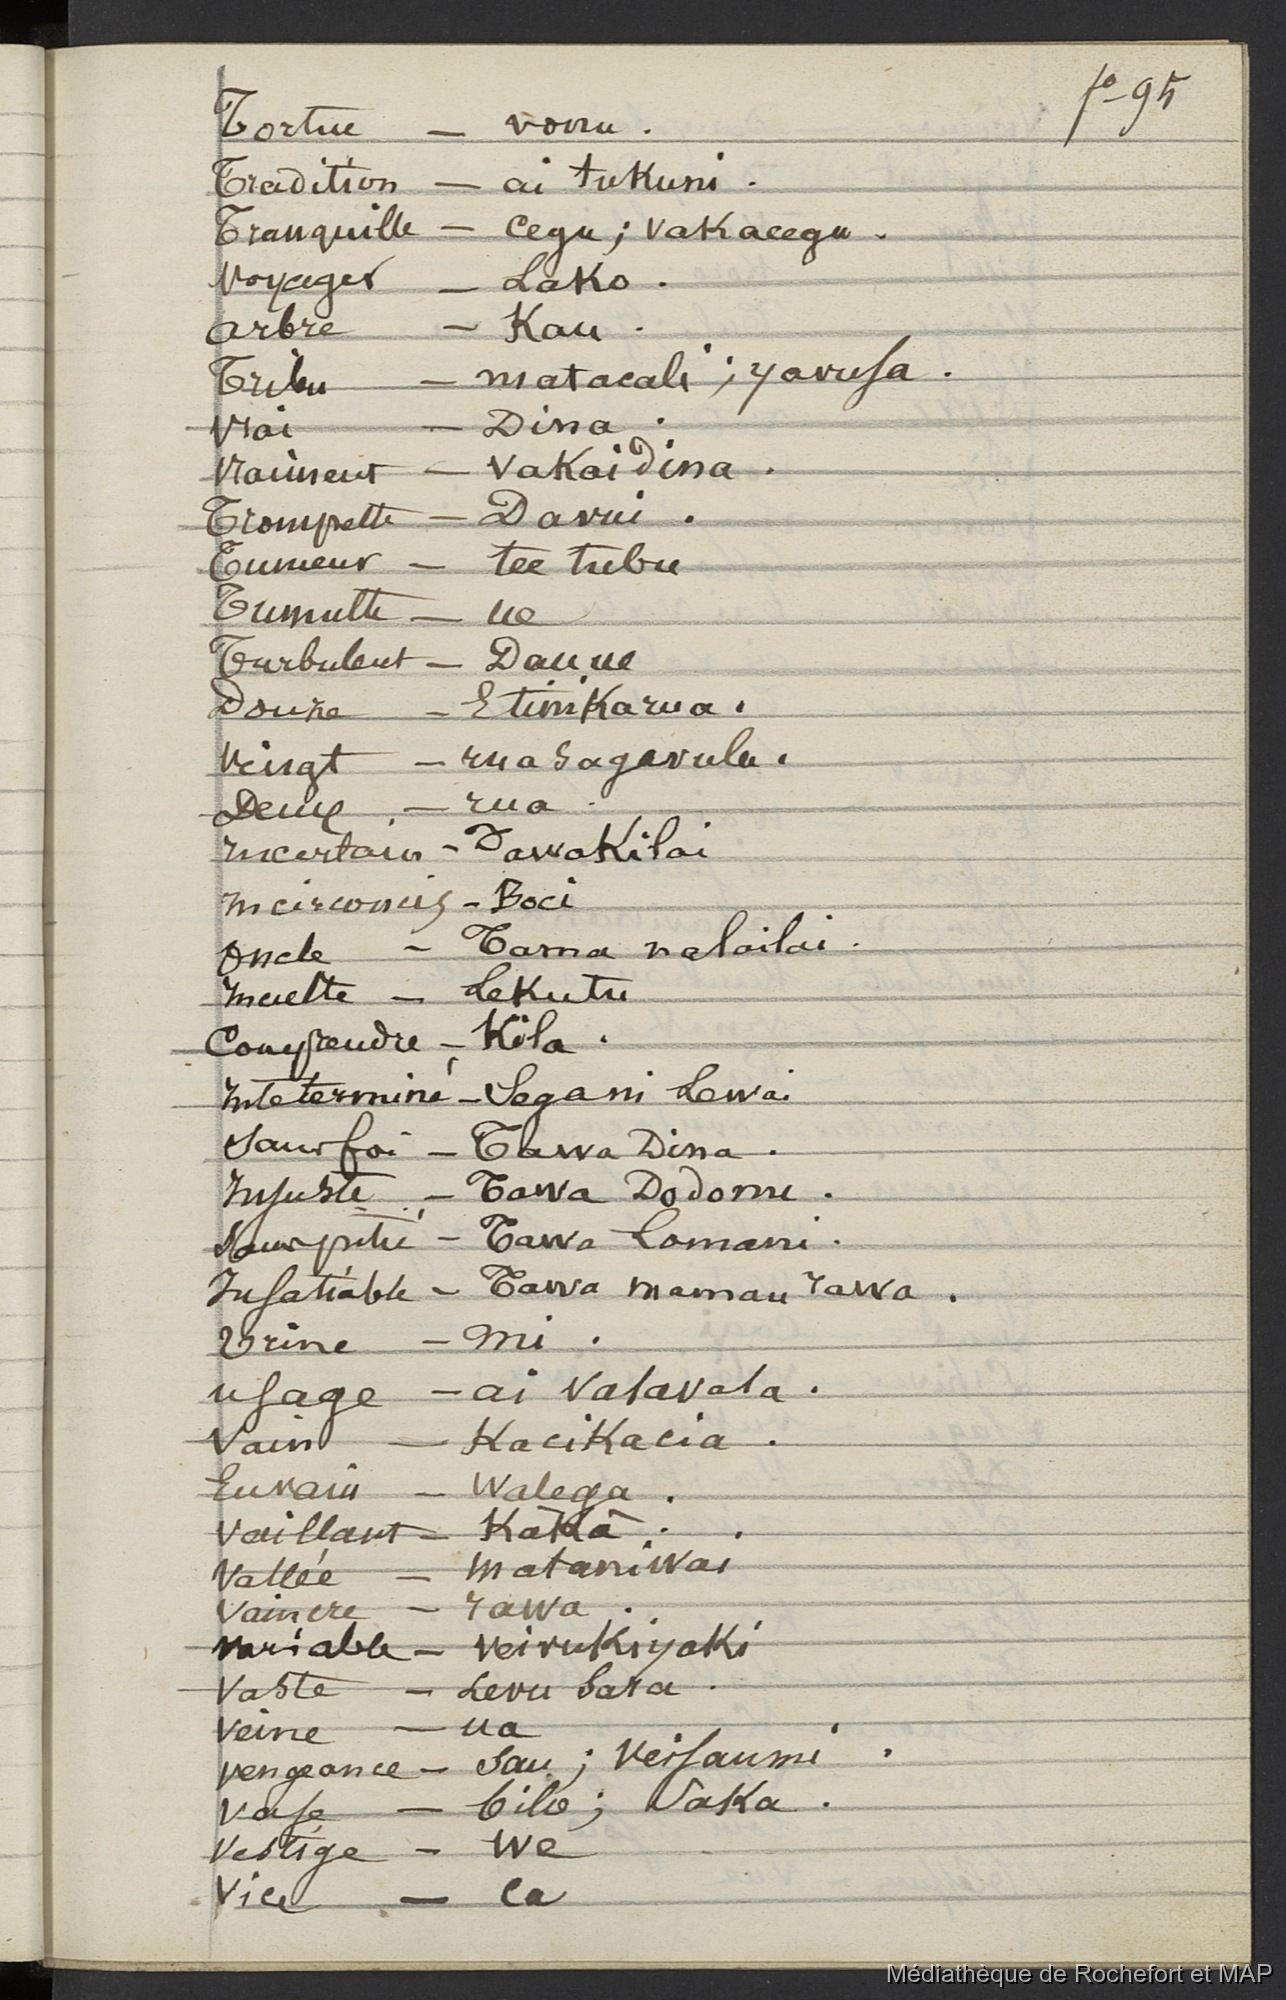 fo-95
Tortue — vonu.
Tradition — ai tukuni.
Tranquille — cegu; vakacegu.
Voyager — Lako.
arbre — Kau.
Tribu — matacali; yavusa.
Vrai — Dina.
Vraiment — Vakaidina.
Trompette — Davui.
Tumeur — tee tubu
Tumulte — ue
Turbulent — Dauue
Douze — Etinikarua.
Vingt — rua sagavulu.
Deux — rua.
Incertain - Tawakilai
Incirconcis - Boci
Oncle — Tama nalailai.
Inculte — Lekutu
Comprendre - Kila.
Inteterminé - Segani Lewai
Sans foi — Tawa Dina.
Injuste — Tawa Dodonu.
Sans pitié - Tawa Lomani.
Insatiable - Tawa mamau rawa.
Urine — mi.
usage — ai valavala.
Vain — Kacikacia.
En vain — Walega.
Vaillant — Kākā.
Vallée — mataniwai
Vaincre — rawa.
Variable — veivukiyaki
Vaste — Levu sara.
Veine — ua
Vengeance — sau; Veisaumi.
Vase — bilo; Saka.
Vestige — We
Vice — ca
Médiathèque de Rochefort et MAP